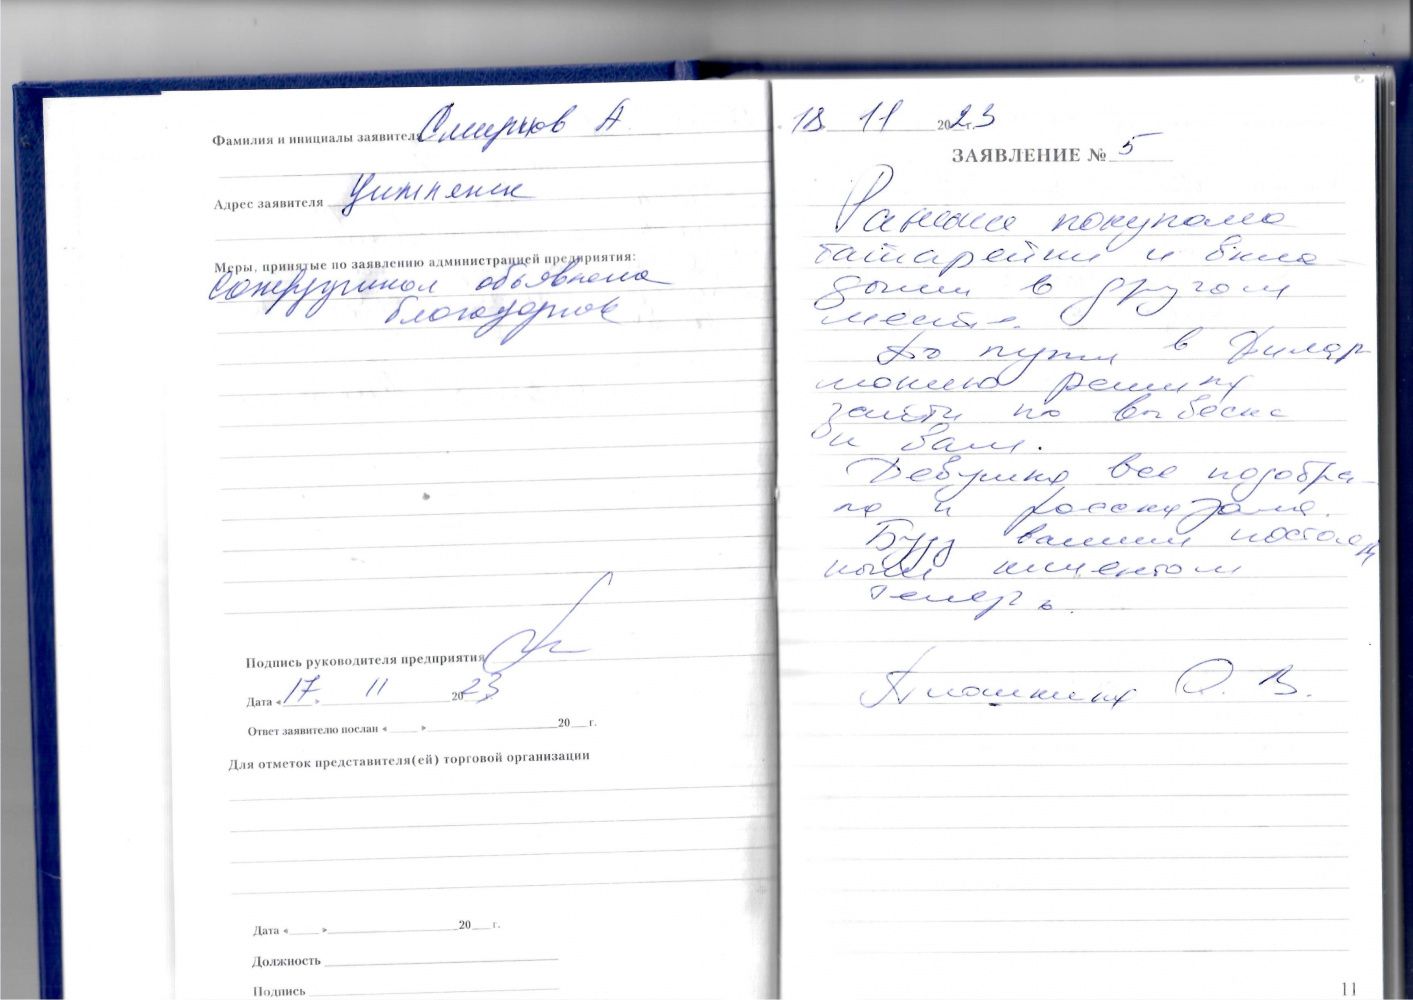 Фамилия и инициалы заявителя Смирнов А
Адрес заявителя
Меры, принятые по заявлению администрацией предприятия:
Сотрудникам объявлена
благодарность
Подпись руководителя предприятия
Дата « 17 » 11 2023
Ответ заявителю послан « » 20 г.
Для отметок представителя(ей) торговой организации
Дата « » 20 г.
Должность
Подпись
18 11 2023 г.
ЗАЯВЛЕНИЕ № 5
Раньше покупала
батарейки и вкла-
дыши в другом
месте.
По пути в Филар
монию решила
зайти по вывеске
к вам.
Девушка все подобра-
ла и рассказала.
Буду вашим постоян
ным клиентом
теперь.
О. В.
11